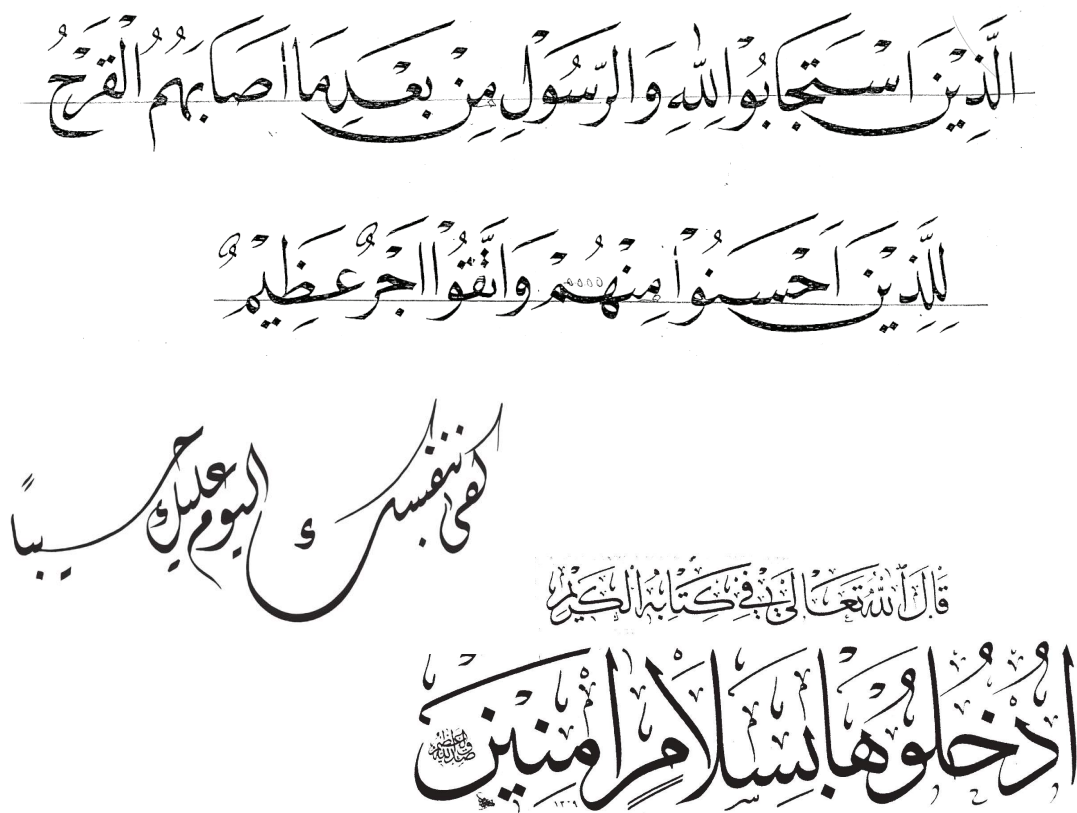 الَّذِيْنَ اسْتَجَابُوْا لِلّٰهِ وَالرَّسُوْلِ مِنْ بَعْدِ مَا اَصَابَهُمُ الْقَرْحُ
لِلَّذِيْنَ اَحْسَنُوْا مِنْهُمْ وَاتَّقُوْا اَجْرٌ عَظِيْمٌ
كفى بنفسك اليوم عليك حسيباً
قَالَ ٱللهُ تَعَالَىٰ فِي كِتَابِهِ الْكَرِيْمِ
اُدْخُلُوْهَا بِسَلَامٍ اٰمِنِيْنَ
صدق الله العظيم
١٣٠٩